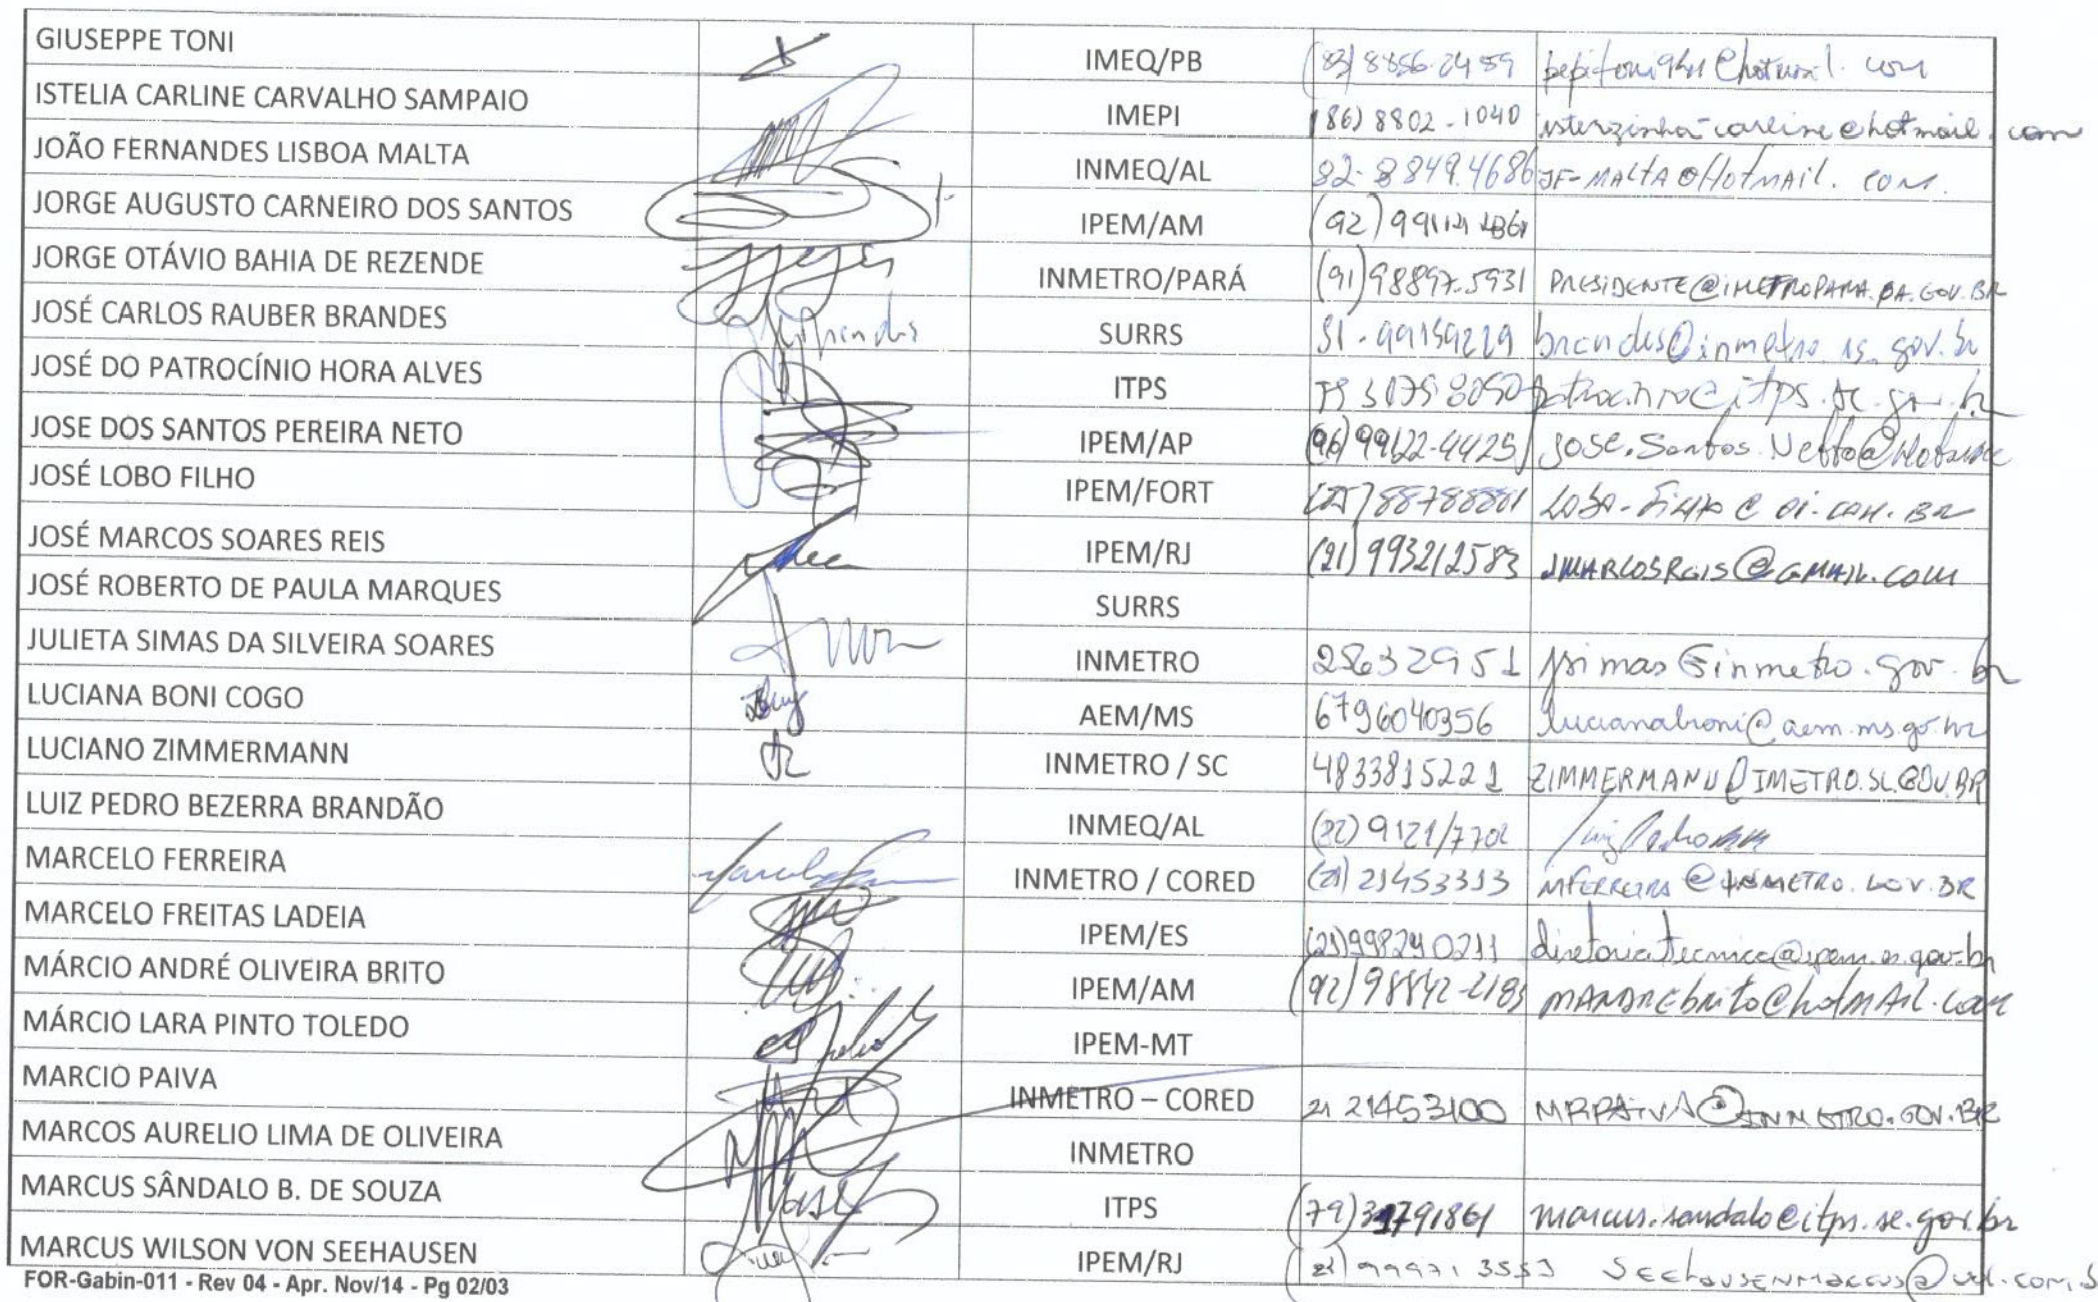 GIUSEPPE TONI IMEQ/PB (83) 8856-2459
ISTELIA CARLINE CARVALHO SAMPAIO IMEPI (86) 8802-1040 isterzinha-carline@hotmail.com
JOÃO FERNANDES LISBOA MALTA INMEQ/AL 82-8849.4686 JF-MALTA@HOTMAIL.COM.
JORGE AUGUSTO CARNEIRO DOS SANTOS IPEM/AM (92)
JORGE OTÁVIO BAHIA DE REZENDE INMETRO/PARÁ (91) 98897.5931 PRESIDENTE@IMETROPARA.PA.GOV.BR
JOSÉ CARLOS RAUBER BRANDES SURRS 51-99159219 brandes@inmetro.rs.gov.br
JOSÉ DO PATROCÍNIO HORA ALVES ITPS patrocinio@itps.se.gov.br
JOSE DOS SANTOS PEREIRA NETO IPEM/AP (96) 99122-4425
JOSÉ LOBO FILHO IPEM/FORT LOBO-FILHO@OI.COM.BR
JOSÉ MARCOS SOARES REIS IPEM/RJ (21) 993212583 JMARCOSREIS@GMAIL.COM
JOSÉ ROBERTO DE PAULA MARQUES SURRS
JULIETA SIMAS DA SILVEIRA SOARES INMETRO 25632951 jsimas@inmetro.gov.br
LUCIANA BONI COGO AEM/MS 6796040356
LUCIANO ZIMMERMANN INMETRO / SC 4833815221 ZIMMERMANN@IMETRO.SC.GOV.BR
LUIZ PEDRO BEZERRA BRANDÃO INMEQ/AL
MARCELO FERREIRA INMETRO / CORED (21) 21453313 MFERREIRA@INMETRO.GOV.BR
MARCELO FREITAS LADEIA IPEM/ES diretoriatecnica@ipem.es.gov.br
MÁRCIO ANDRÉ OLIVEIRA BRITO IPEM/AM MANDREbrito@hotmAil.com
MÁRCIO LARA PINTO TOLEDO IPEM-MT
MARCIO PAIVA INMETRO – CORED 21 21453100 MRPAIVA@INMETRO.GOV.BR
MARCOS AURELIO LIMA DE OLIVEIRA INMETRO
MARCUS SÂNDALO B. DE SOUZA ITPS (79) 31791861 marcus.sandalo@itps.se.gov.br
MARCUS WILSON VON SEEHAUSEN IPEM/RJ (21) 99971 3553
FOR-Gabin-011 - Rev 04 - Apr. Nov/14 - Pg 02/03